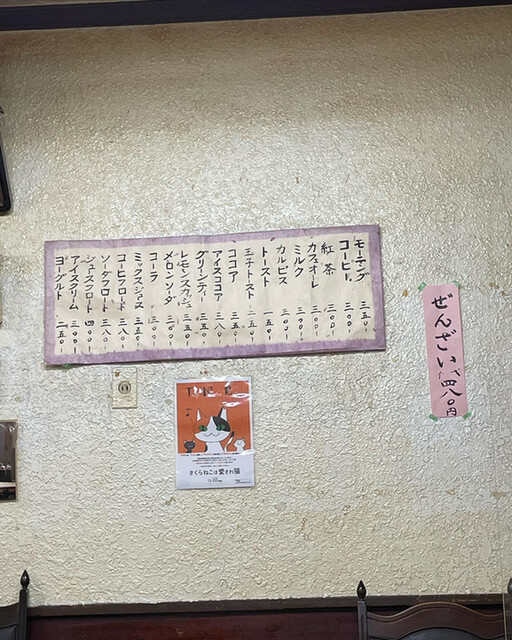 モーニング 三五〇ー
コーヒー 三〇〇ー
紅茶 三〇〇ー
カフェオーレ 三〇〇ー
ミルク 三〇〇ー
カルピス 三〇〇ー
トースト 一五〇ー
玉子トースト 二五〇ー
ココア 三五〇ー
アイスココア 三八〇ー
グリーンティー 三五〇ー
レモンスカッシュ 三五〇ー
メロンソーダ 三〇〇ー
コーラ 三〇〇ー
ミックスジュース 三五〇ー
コーヒフロート 三八〇ー
ソーダフロート 三八〇ー
ジュースフロート 四〇〇ー
アイスクリーム 三〇〇ー
ヨーグルト 二五〇ー
ぜんざい 四八〇円
さくらねこは愛され猫